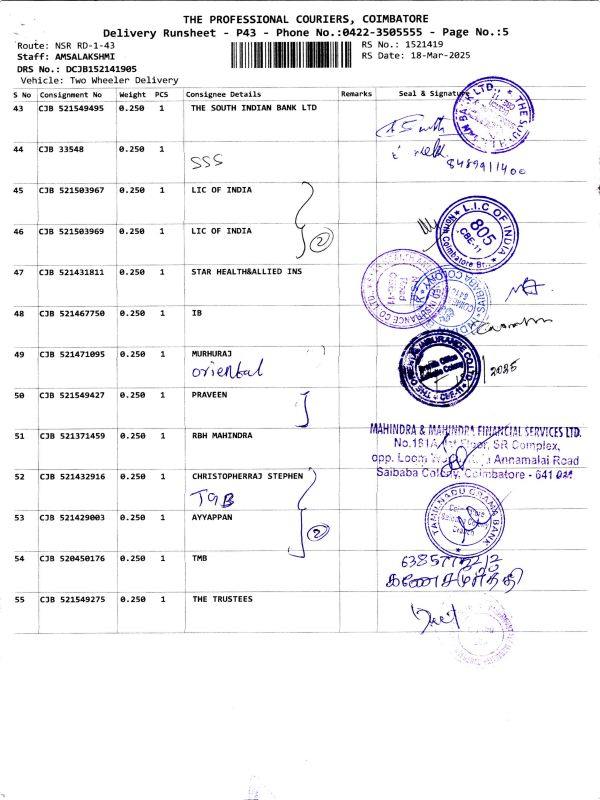 THE PROFESSIONAL COURIERS, COIMBATORE
Delivery Runsheet - P43 - Phone No.:0422-3505555 - Page No.:5
Route: NSR RD-1-43
RS No.: 1521419
Staff: AMSALAKSHMI
RS Date: 18-Mar-2025
DRS No.: DCJB152141905
Vehicle: Two Wheeler Delivery
S No Consignment No Weight PCS Consignee Details Remarks Seal & Signature
43 CJB 521549495 0.250 1 THE SOUTH INDIAN BANK LTD
44 CJB 33548 0.250 1
SSS
8489411400
45 CJB 521503967 0.250 1 LIC OF INDIA
46 CJB 521503969 0.250 1 LIC OF INDIA
2
L.I.C OF INDIA
805
CBE-11
North Coimbatore Br.
47 CJB 521431811 0.250 1 STAR HEALTH&ALLIED INS
48 CJB 521467750 0.250 1 IB
49 CJB 521471095 0.250 1 MURHURAJ
oriental
2025
50 CJB 521549427 0.250 1 PRAVEEN
51 CJB 521371459 0.250 1 RBH MAHINDRA
MAHINDRA & MAHINDRA FINANCIAL SERVICES LTD.
No.181A, 1st Floor, SR Complex,
opp. Loom Annamalai Road
Saibaba Colony, Coimbatore - 641 011
52 CJB 521432916 0.250 1 CHRISTOPHERRAJ STEPHEN
TGB
53 CJB 521429003 0.250 1 AYYAPPAN
2
TAMILNADU GRAMA BANK
Saibaba Colony
Branch
54 CJB 520450176 0.250 1 TMB
55 CJB 521549275 0.250 1 THE TRUSTEES